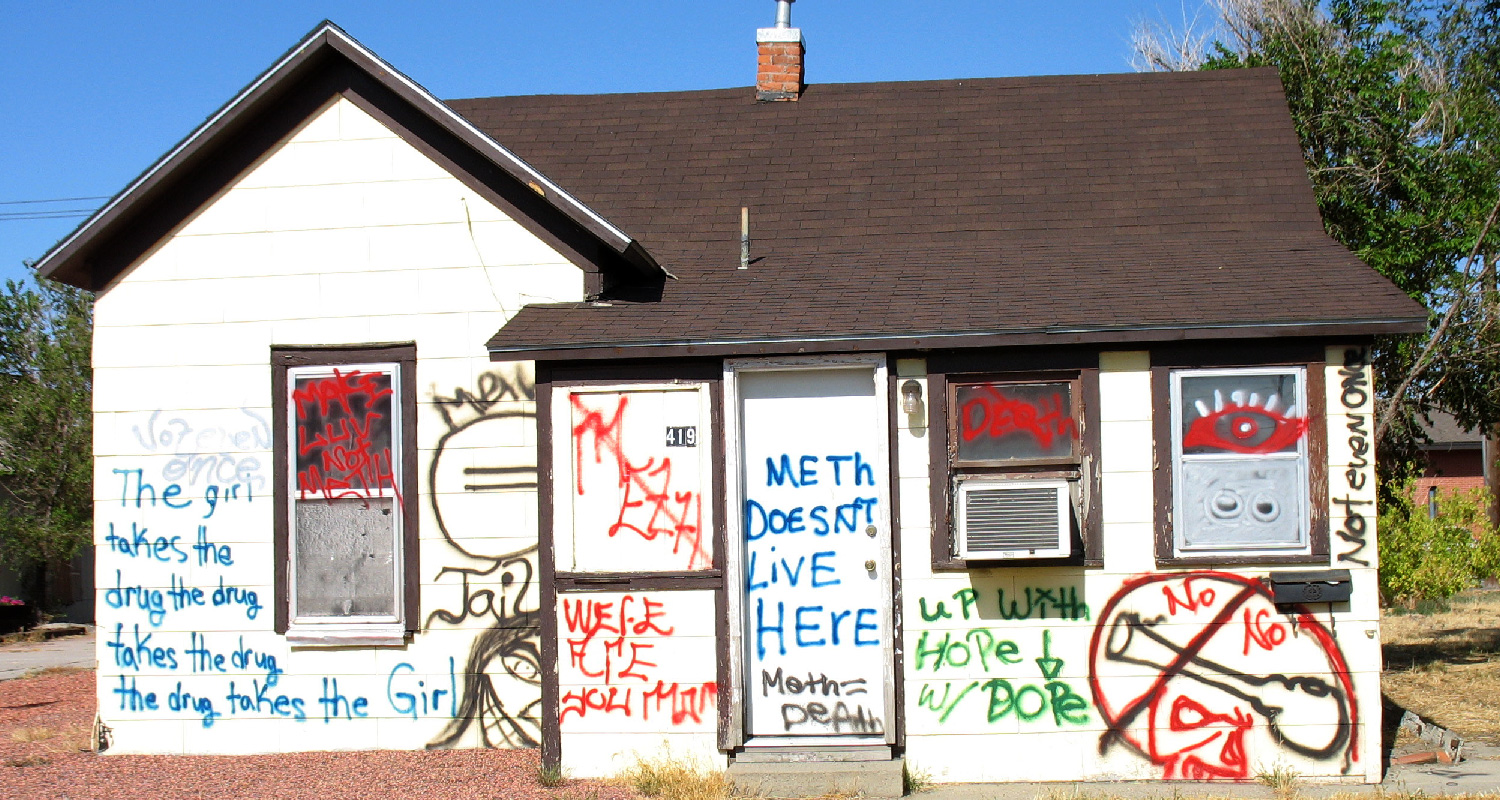 Not even
once
The girl
takes the
drug the drug
takes the drug
the drug takes the Girl
MAKE
LUV
NOT
METH
Meth
=
Jail
419
METh
DOESN'T
LIVE
HERE
Meth=
DeATH
DeATh
UP With
HOPe
W/ DOPe
NO
NO
Not even ONce